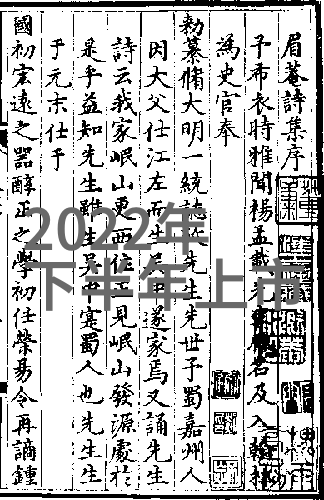 眉菴詩集序
予布衣時雅聞楊孟載先
名及入翰林
為史官奉
勑纂脩大明一統誌
先生先世予蜀嘉州人
因大父仕江左而生
遂家焉又誦先生
詩云我家岷山更西住
見岷山發源處於
是乎益知先生雖生吳中
蜀人也先生生
于元末仕于
國初宏遠之器醇正之學初任榮昜令再謫鍾
2022年
下半年上市